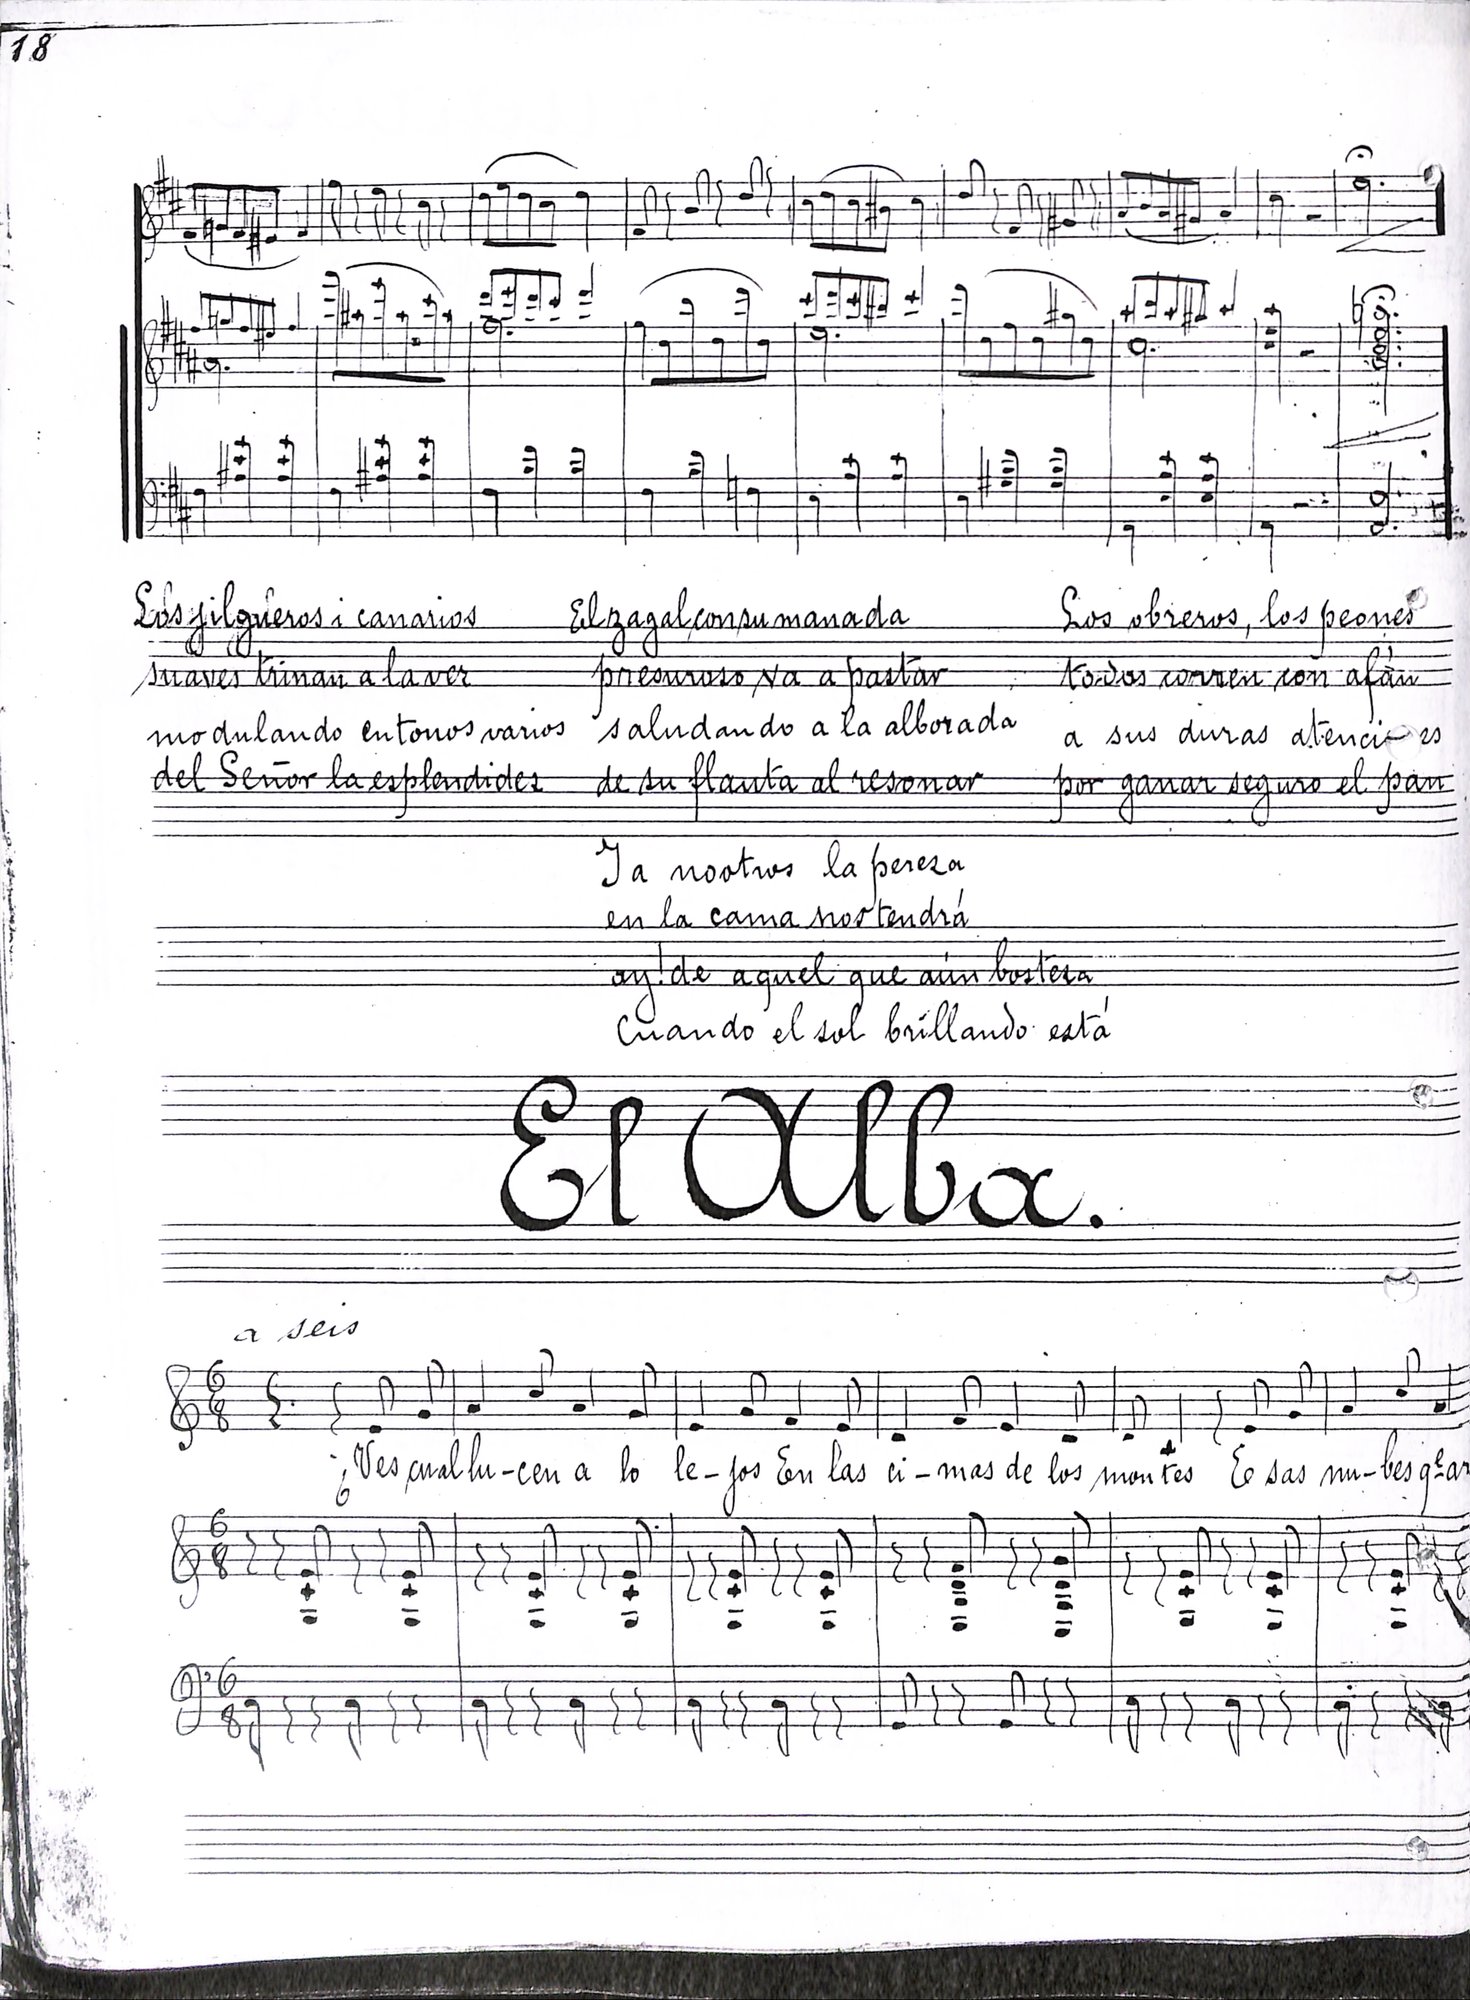 18
Los jilgueros i canarios
suaves trinan a la vez
modulando en tonos varios
del Señor la esplendidez
El zagal, con su manada
presuroso va a pastar
saludando a la alborada
de su flauta al resonar
Los obreros, los peones
todos corren con afán
a sus duras atenci es
por ganar seguro el pan
I a nootros la pereza
en la cama nos tendrá
ay! de aquel que aún bosteza
cuando el sol brillando está
El Alba.
a seis
6 8
¿Ves cual lu-cen a lo le-jos En las ci-mas de los montes E sas nu-bes qe ar
6 8
6 8